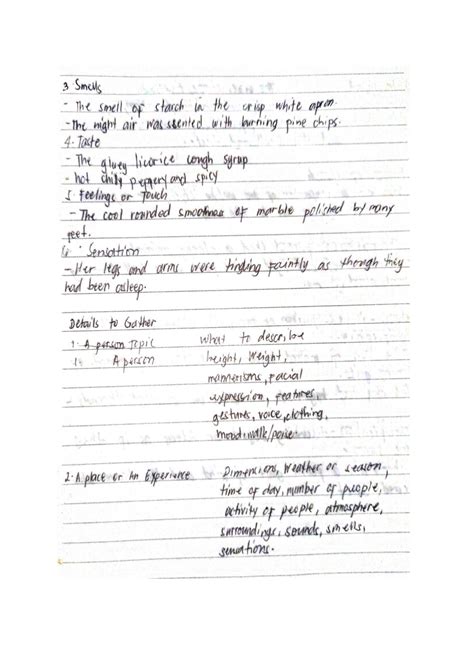 3. Smells
- The smell of starch in the crisp white apron.
- The night air was scented with burning pine chips.
4. Taste
- The gluey licorice cough syrup
- hot chilly peppery and spicy
5. Feelings or Touch
- The cool rounded smoothness of marble polished by many
feet.
Sensation
- Her legs and arms were tingling faintly as though they
had been asleep.
Details to Gather
1. A person Topic what to describe
1. A person height, Weight,
mannerisms, facial
expression, features,
gestures, voice, clothing,
mood, walk/poise
2. A place or An Experience Dimensions, Weather or season,
time of day, number of people,
activity of people, atmosphere,
surroundings, sounds, smells,
sensations.